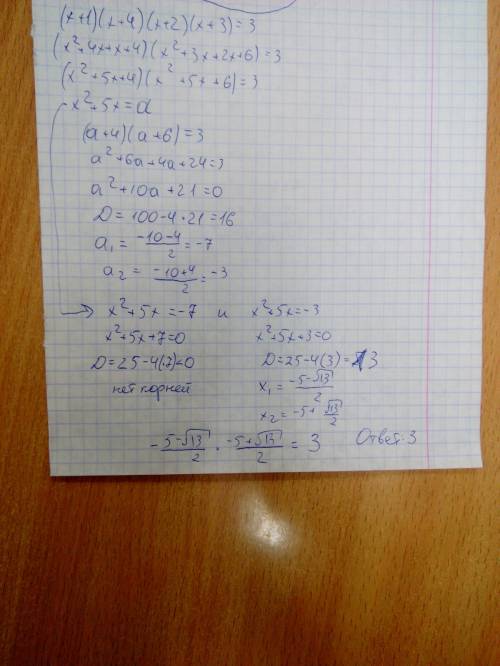 (x+1)(x+4)(x+2)(x+3)=3
(x²+4x+x+4)(x²+3x+2x+6)=3
(x²+5x+4)(x²+5x+6)=3
x²+5x=a
(a+4)(a+6)=3
a²+6a+4a+24=3
a²+10a+21=0
D=100-4·21=16
a₁=(-10-4)/2=-7
a₂=(-10+4)/2=-3
x²+5x=-7 и x²+5x=-3
x²+5x+7=0 x²+5x+3=0
D=25-4(7)<0 D=25-4(3)=13
нет корней x₁=(-5-√13)/2
x₂=-5+√13/2
-(5-√13)/2·(-5+√13)/2=3 Ответ: 3